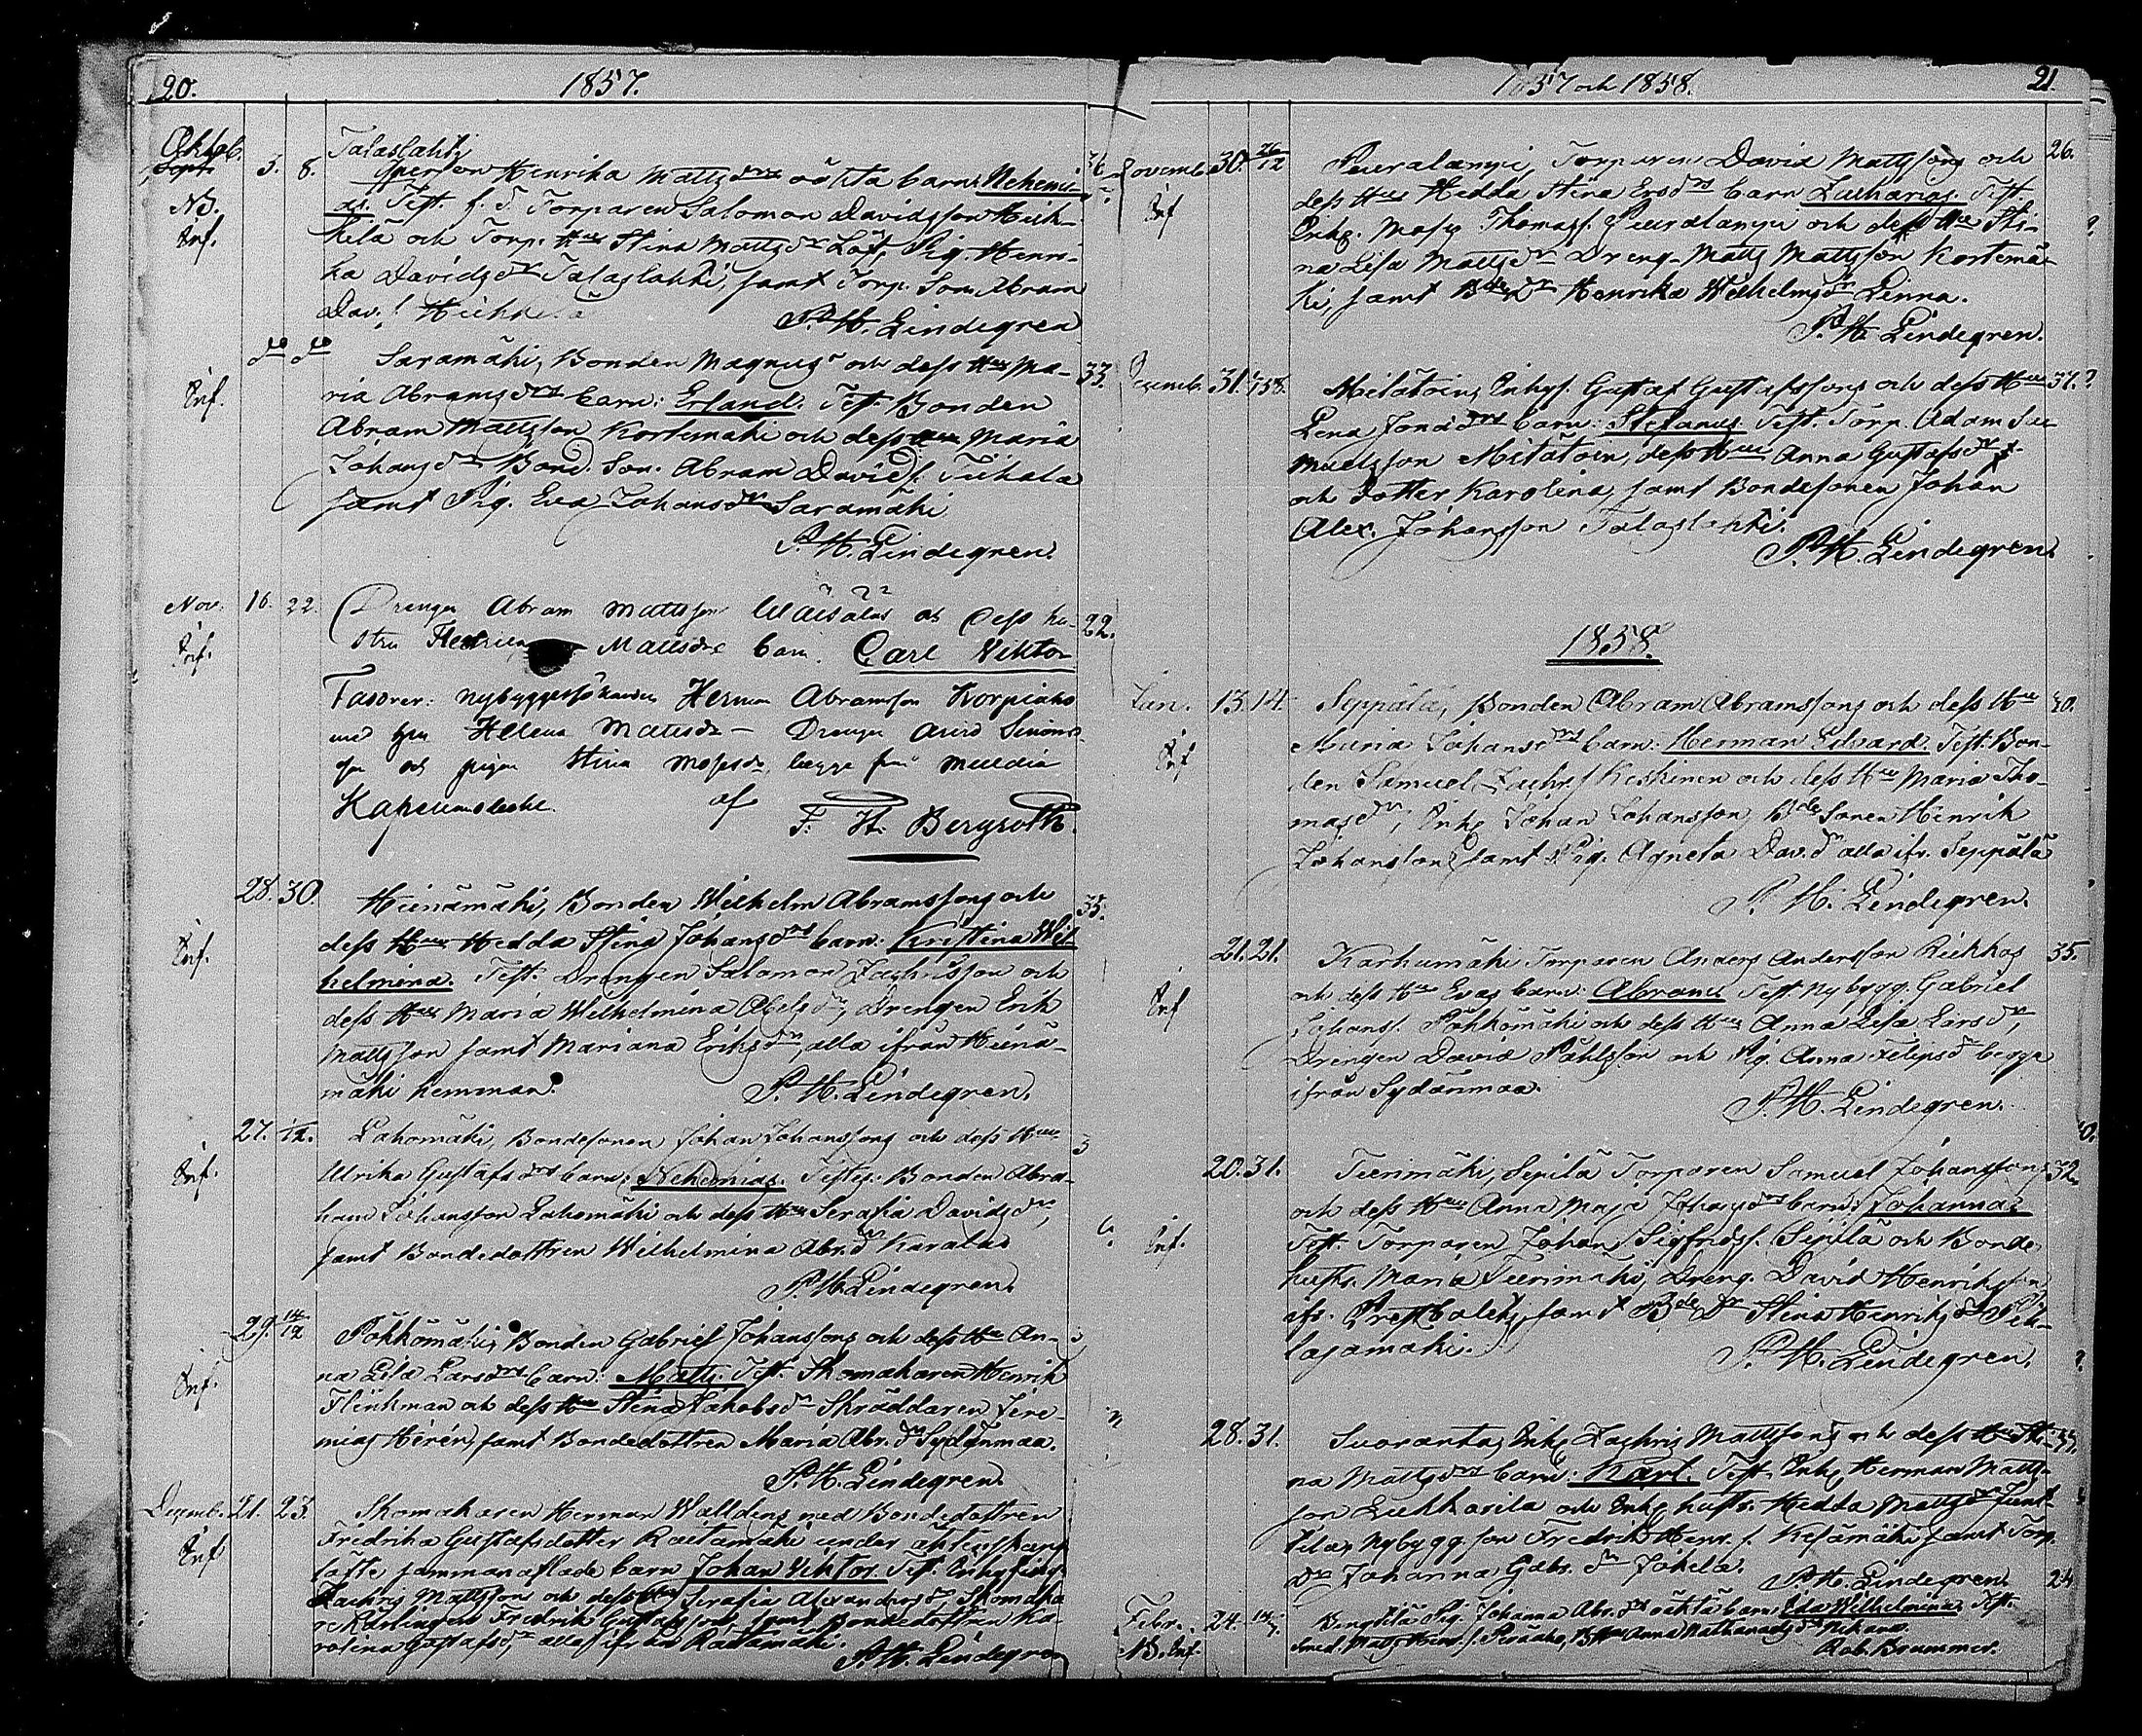 20. 1857.
Oktob. 5. 8. Talaslahti
Henrika Mattsdrs oäkta barn: Nehemi-
NB. as. Test. f. T. Torparen Salomon Davidsson Heik-
Inf. kilä och Torp. Hu Stina Mattsdr Pig. Henri-
ka Davidsdr Talaslahti, samt Torp. Son Abram
Dav.s. Heikkilä
P. H. Lindegren
do do Saramäki, Bonden Magnus och dess Hus Ma- 33.
Inf. ria Abramsdrs barn: Erland. Test. Bonden
Abram Mattsson Kortemäki och dess Hu Maria
Johansdr Bond. Son. Abram Davids. Tiihala
samt Pig. Eva Johansdr Saramäki
P. H. Lindegren.
Nov. 16. 22. Drengen Abram Mattsson och dess hu- 22.
Inf. stru Mattsdrs barn. Carl Viktor
Faddrar: Herman Abramsson Korpiaho
med hu Helena Mattsdr – Drengen Simons-
son och pigan Stina Mosesdr begge från Multia
Kapellmoderk. af
F. H. Bergroth.
28. 30. Heinämäki, Bonden Wilhelm Abramssons och 35.
dess Hus Hedda Stina Johansdrs barn: Kristina Wil-
Inf. helmina. Test. Drengen Salomon Zachrisson och
dess Hu Maria Wilhelmina Abelsdr, Drengen Erik
Mattsson samt Mariana Eriksdr, alla ifrån Heinä-
mäki hemman. P. H. Lindegren.
27. 1/12. Lahomäki, Bondesonen Johan Johanssons och dess Hus
Inf. Ulrika Gustafsdrs barn: Nehemias. Testes: Bonden Abra-
ham Johansson Lahomäki och dess Hu Serafia Davidsdr,
samt Bondedottren Wilhelmina Abr.dr Karalas
P. H. Lindegren.
29. 14/12 Pökkömäki, Bonden Gabriel Johanssons och dess Hu An-
Inf. na Lisa Larsdrs barn: Matts. Test. Skomakaren Henrik
Flinkman och dess Hu Stina Jakobsdr Skräddaren Jere-
mias Hirén, samt Bondedottren Maria Abr.dr Sydänmaa.
P. H. Lindegren.
Decemb. 21. 23. Skomakaren Herman Walldens med Bondedottren
Inf Fredrika Gustafsdotter Raitamäki under äktenskaps
löfte sammanaflade barn Johan Viktor. Test.
Zachris Mattsson och dess Hu Serafia Alexandersdr, Skomaka-
re Lärlingen Fredrik Gustafsson, samt Bondedottren Ka-
rolina Gustafsdr alla ifrån Raitamäki.
P. H. Lindegren
1857 och 1858. 21.
Novemb. 30. 26/12 Peuralampi, Torparen David Mattssons och 26.
Inf dess Hus Hedda Stina Ersdrs barn Zacharias. Test
Inhs. Moses Thomass. Peuralampi och dess Hu Sti-
na Lisa Mattsdr Dreng. Matts Mattsson Kortemä-
ki, samt Bde Dr Henrika Wilhelmsdr Linna.
P. H. Lindegren.
Decemb. 31. 1/1 58. Mitätoin, Inhys. Gustaf Gustafssons och dess Hus 37.
Lena Jonædrs barn: Stefanus Test. Torp. Adam Sa-
muelsson Mitätoin, dess Hu Anna Gustafsdr
och dotter Karolina, samt Bondesonen Johan
Alex. Johansson Talaslahti.
P. H. Lindegren.
1858.
Jan. 13. 14. Seppälä, Bonden Abram Abramssons och dess Hus 40.
Inf Maria Johansdrs barn: Herman Edvard. Test: Bon-
den Samuel Zachr.s. Keskinen och dess Hu Maria Tho-
masdr, Inhs Johan Johansson, Bde Sonen Henrik
Johansson, samt Pig. Agneta Dav.dr alla ifr. Seppälä
P. H. Lindegren.
21. 21. Karhumäki Torparen Anders Andersson Riekkos 35.
Inf och dess Hus Evas barn: Abram. Test. Nybygg. Gabriel
Johanss. Pökkömäki och dess Hu Anna Lisa Larsdr,
Drengen David Påhlsson och Pig. Anna Felipsdr begge
ifrån Sydänmaa.
P. H. Lindegren.
20. 31. Tierimäki, Sipilä Torparen Samuel Johanssons 32.
och dess Hus Anna Maja Johansdrs barn: Johanna.
Inf. Test. Torparen Johan Sigfridss. Sipilä och Bonde
hustr. Maria Tierimäki, Dreng. David Henriksson
ifr. Prestbolet, samt Bde Dr Stina Henriksdr Pih-
lajamäki.
P. H. Lindegren.
28. 31. Suoranta, Inhs Zachris Mattssons och dess Hus Sti- 37.
na Mattsdrs barn: Karl. Test. Inhs Herman Matts-
son Liukkarila och Inhs hustr. Hedda Mattsdr Junt-
tila, Nybygg. son Fredrik Henr.s. Kesämäki, samt Torp.
Dr Johanna Gabr.dr Jokela. P. H. Lindegren.
Febr. 24. Pig. Johanna Abr.drs oäkta barn Ida Wilhelmina. Test. 24
NB. Inf. Matts Henr.s. Anna
Rob. Brummer.